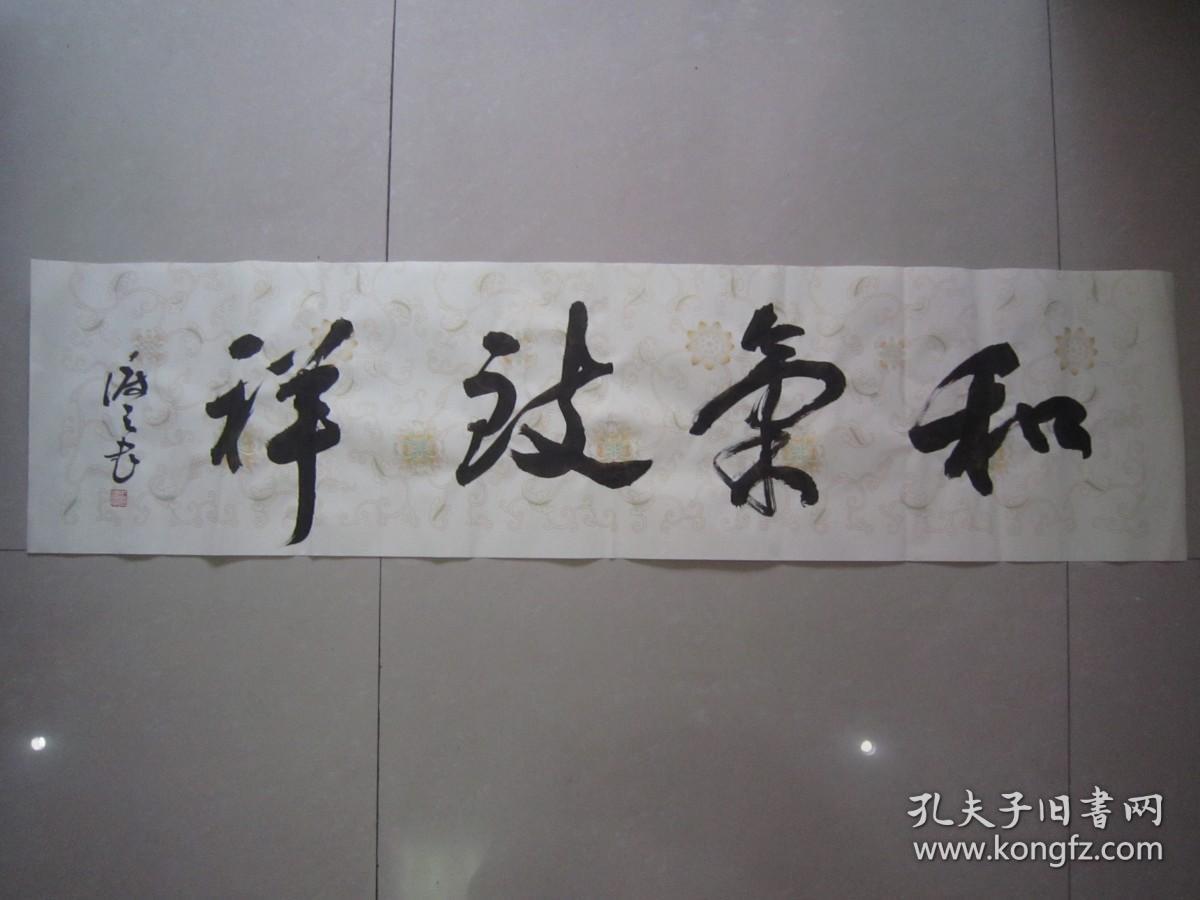 和氣致祥
孔夫子旧書网
www.kongfz.com